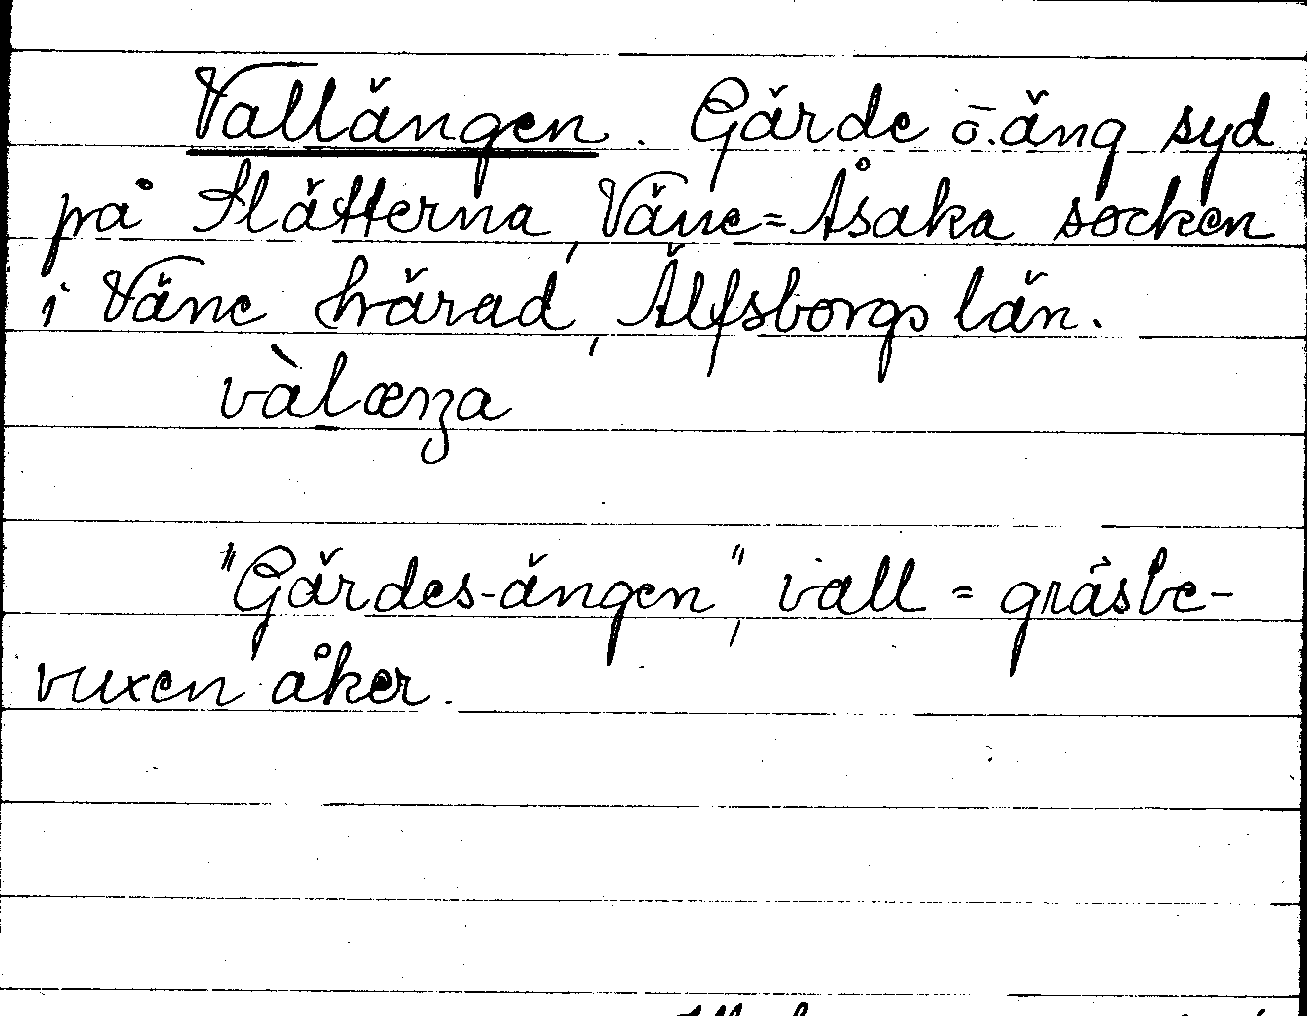 Vallängen. Gärde o. äng syd
på Slätterna, Väne=Åsaka socken
i Väne härad, Älfsborgs län.
vàlæŋa
"Gärdes-ängen", vall = gräsbe-
vuxen åker.